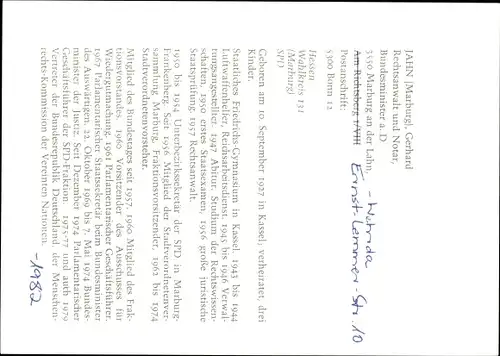 JAHN (Marburg), Gerhard
Rechtsanwalt und Notar,
Bundesminister a. D.
3550 Marburg an der Lahn,
- Wehrda
Am Richtsberg 1/VIII Ernst-Lemmer-Str. 10
Postanschrift:
5300 Bonn 12
Hessen
Wahlkreis 131
(Marburg)
SPD
Geboren am 10. September 1927 in Kassel; verheiratet, drei
Kinder.
Staatliches Friedrichs-Gymnasium in Kassel. 1943 bis 1944
Luftwaffenhelfer, Reichsarbeitsdienst. 1945 bis 1946 Verwal-
tungsangestellter. 1947 Abitur, Studium der Rechtswissen-
schaften, 1950 erstes Staatsexamen, 1956 große juristische
Staatsprüfung, 1957 Rechtsanwalt.
1950 bis 1954 Unterbezirkssekretär der SPD in Marburg-
Frankenberg. Seit 1956 Mitglied der Stadtverordnetenver-
sammlung Marburg, Fraktionsvorsitzender, 1962 bis 1974
Stadtverordnetenvorsteher.
Mitglied des Bundestages seit 1957. 1960 Mitglied des Frak-
tionsvorstandes. 1960 Vorsitzender des Ausschusses für
Wiedergutmachung, 1961 Parlamentarischer Geschäftsführer.
1967 Parlamentarischer Staatssekretär beim Bundesminister
des Auswärtigen. 22. Oktober 1969 bis 7. Mai 1974 Bundes-
minister der Justiz. Seit Dezember 1974 Parlamentarischer
Geschäftsführer der SPD-Fraktion. 1975-77 und auch 1979
Vertreter der Bundesrepublik Deutschland in der Menschen-
rechts-Kommission der Vereinten Nationen.
-1982